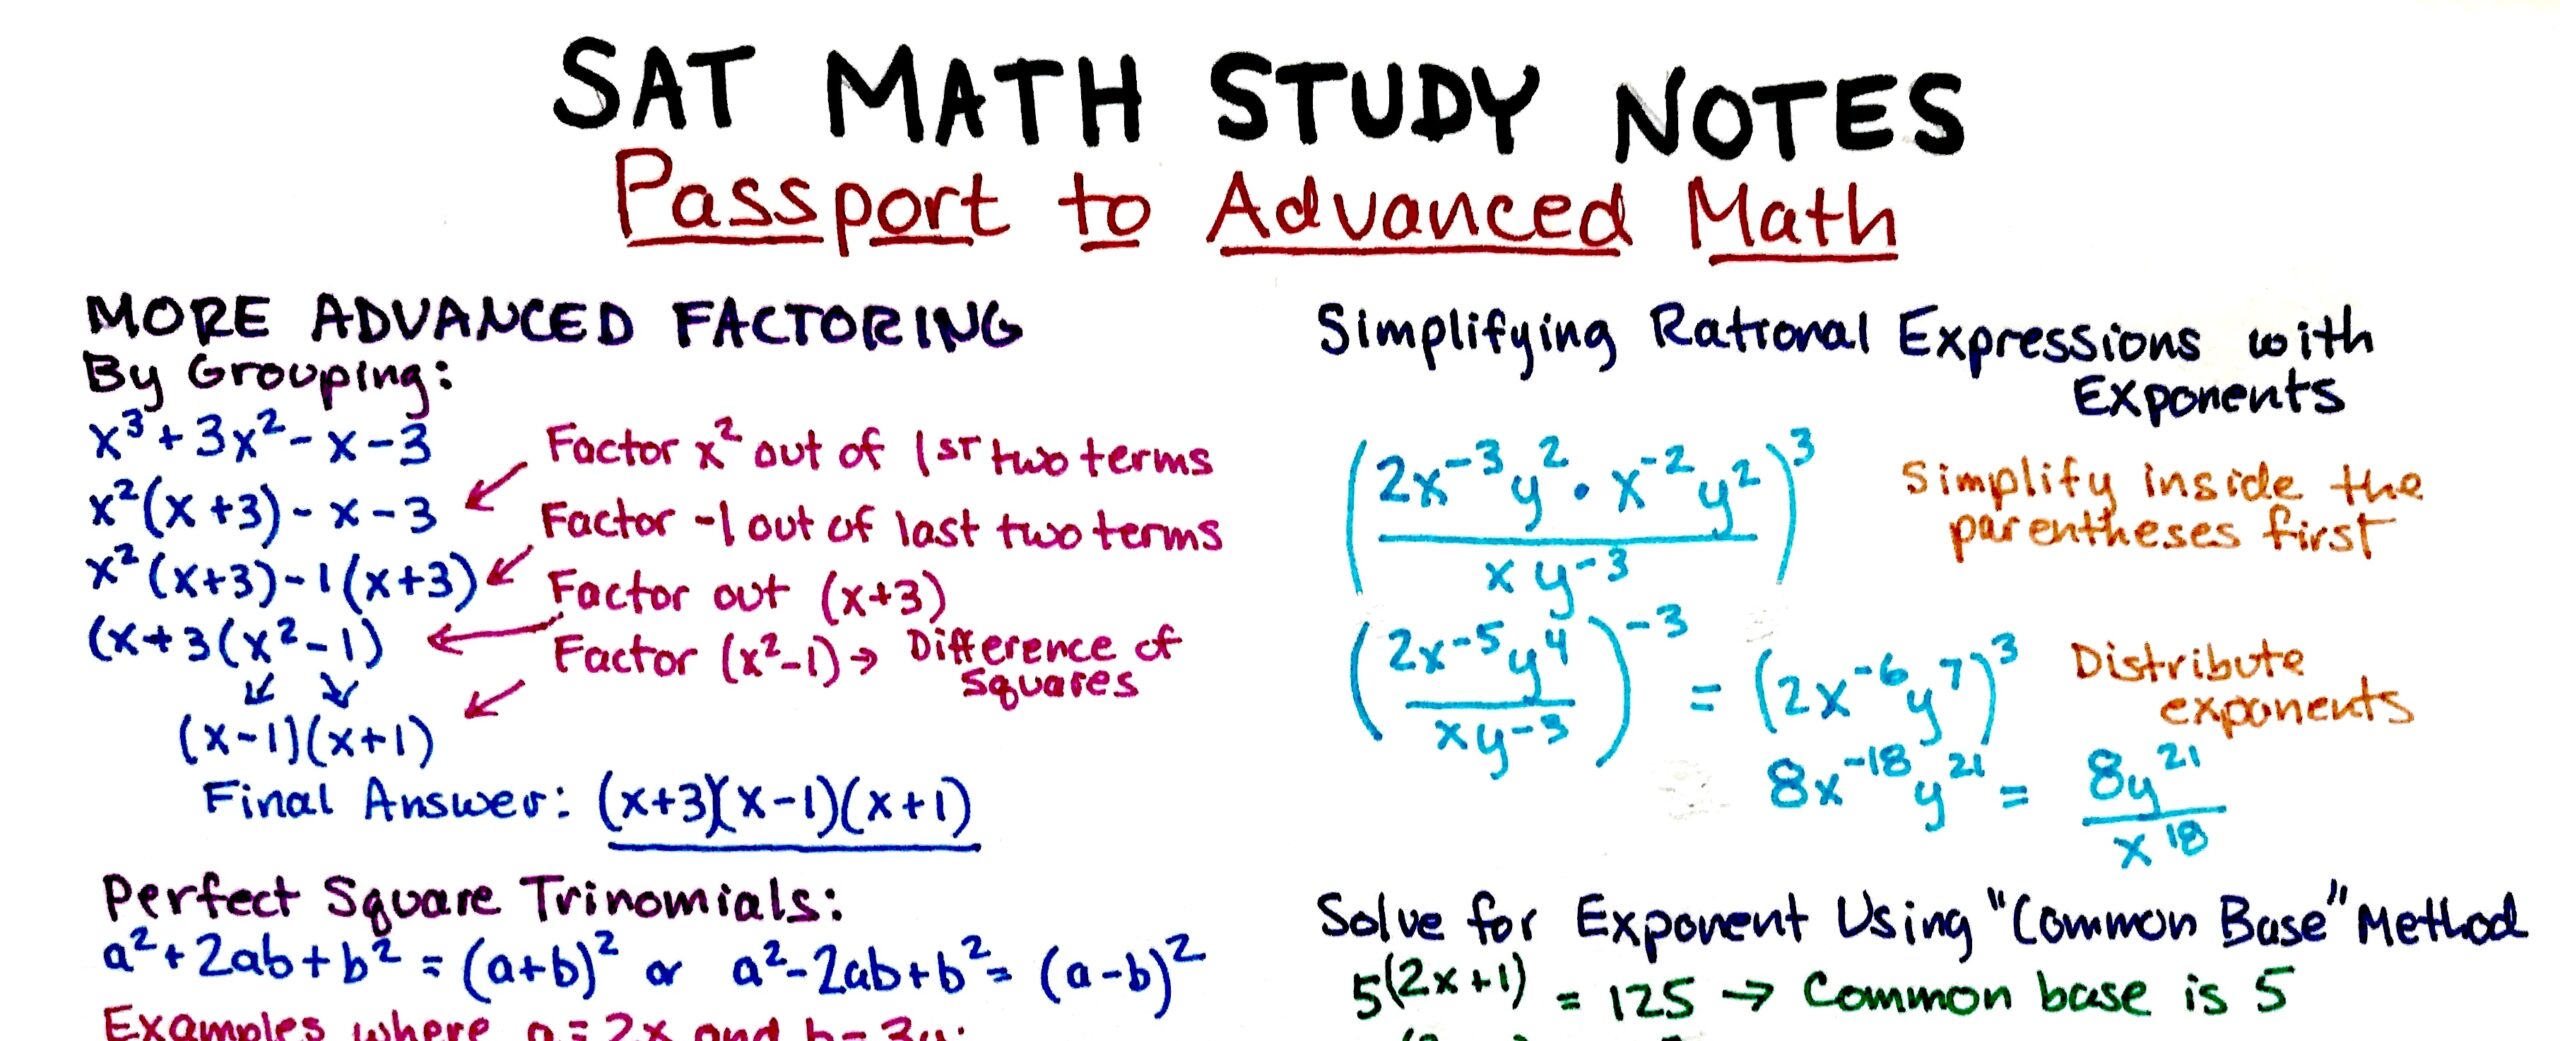 SAT MATH STUDY NOTES
Passport to Advanced Math
MORE ADVANCED FACTORING
By Grouping:
x³+3x²-x-3
Factor x² out of 1ST two terms
x²(x+3)-x-3
Factor -1 out of last two terms
x²(x+3)-1(x+3)
Factor out (x+3)
(x+3(x²-1)
Factor (x²-1)→ Difference of
Squares
(x-1)(x+1)
Final Answer: (x+3)(x-1)(x+1)
Perfect Square Trinomials:
a²+2ab+b²=(a+b)² or a²-2ab+b²=(a-b)²
Examples where a=2x and b=3y:
Simplifying Rational Expressions with
Exponents
(2x⁻³y² • x⁻²y² / xy⁻³)³
Simplify inside the
parentheses first
(2x⁻⁵y⁴ / xy⁻³)⁻³ = (2x⁻⁶y⁷)³
Distribute
exponents
8x⁻¹⁸y²¹ = 8y²¹ / x¹⁸
Solve for Exponent Using "Common Base" Method
5^(2x+1) = 125 → Common base is 5